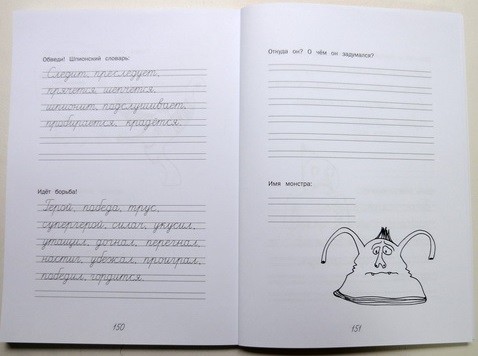 Обведи! Шпионский словарь:
Следит, преследует,
прячется, шепчется,
шпионит, подслушивает,
пробирается, крадётся.
Идёт борьба!
Герой, победа, трус,
супергерой, силач, укусил,
утащил, догнал, перегнал,
настиг, убежал, проиграл,
победил, гордится.
150
Откуда он? О чём он задумался?
Имя монстра:
151